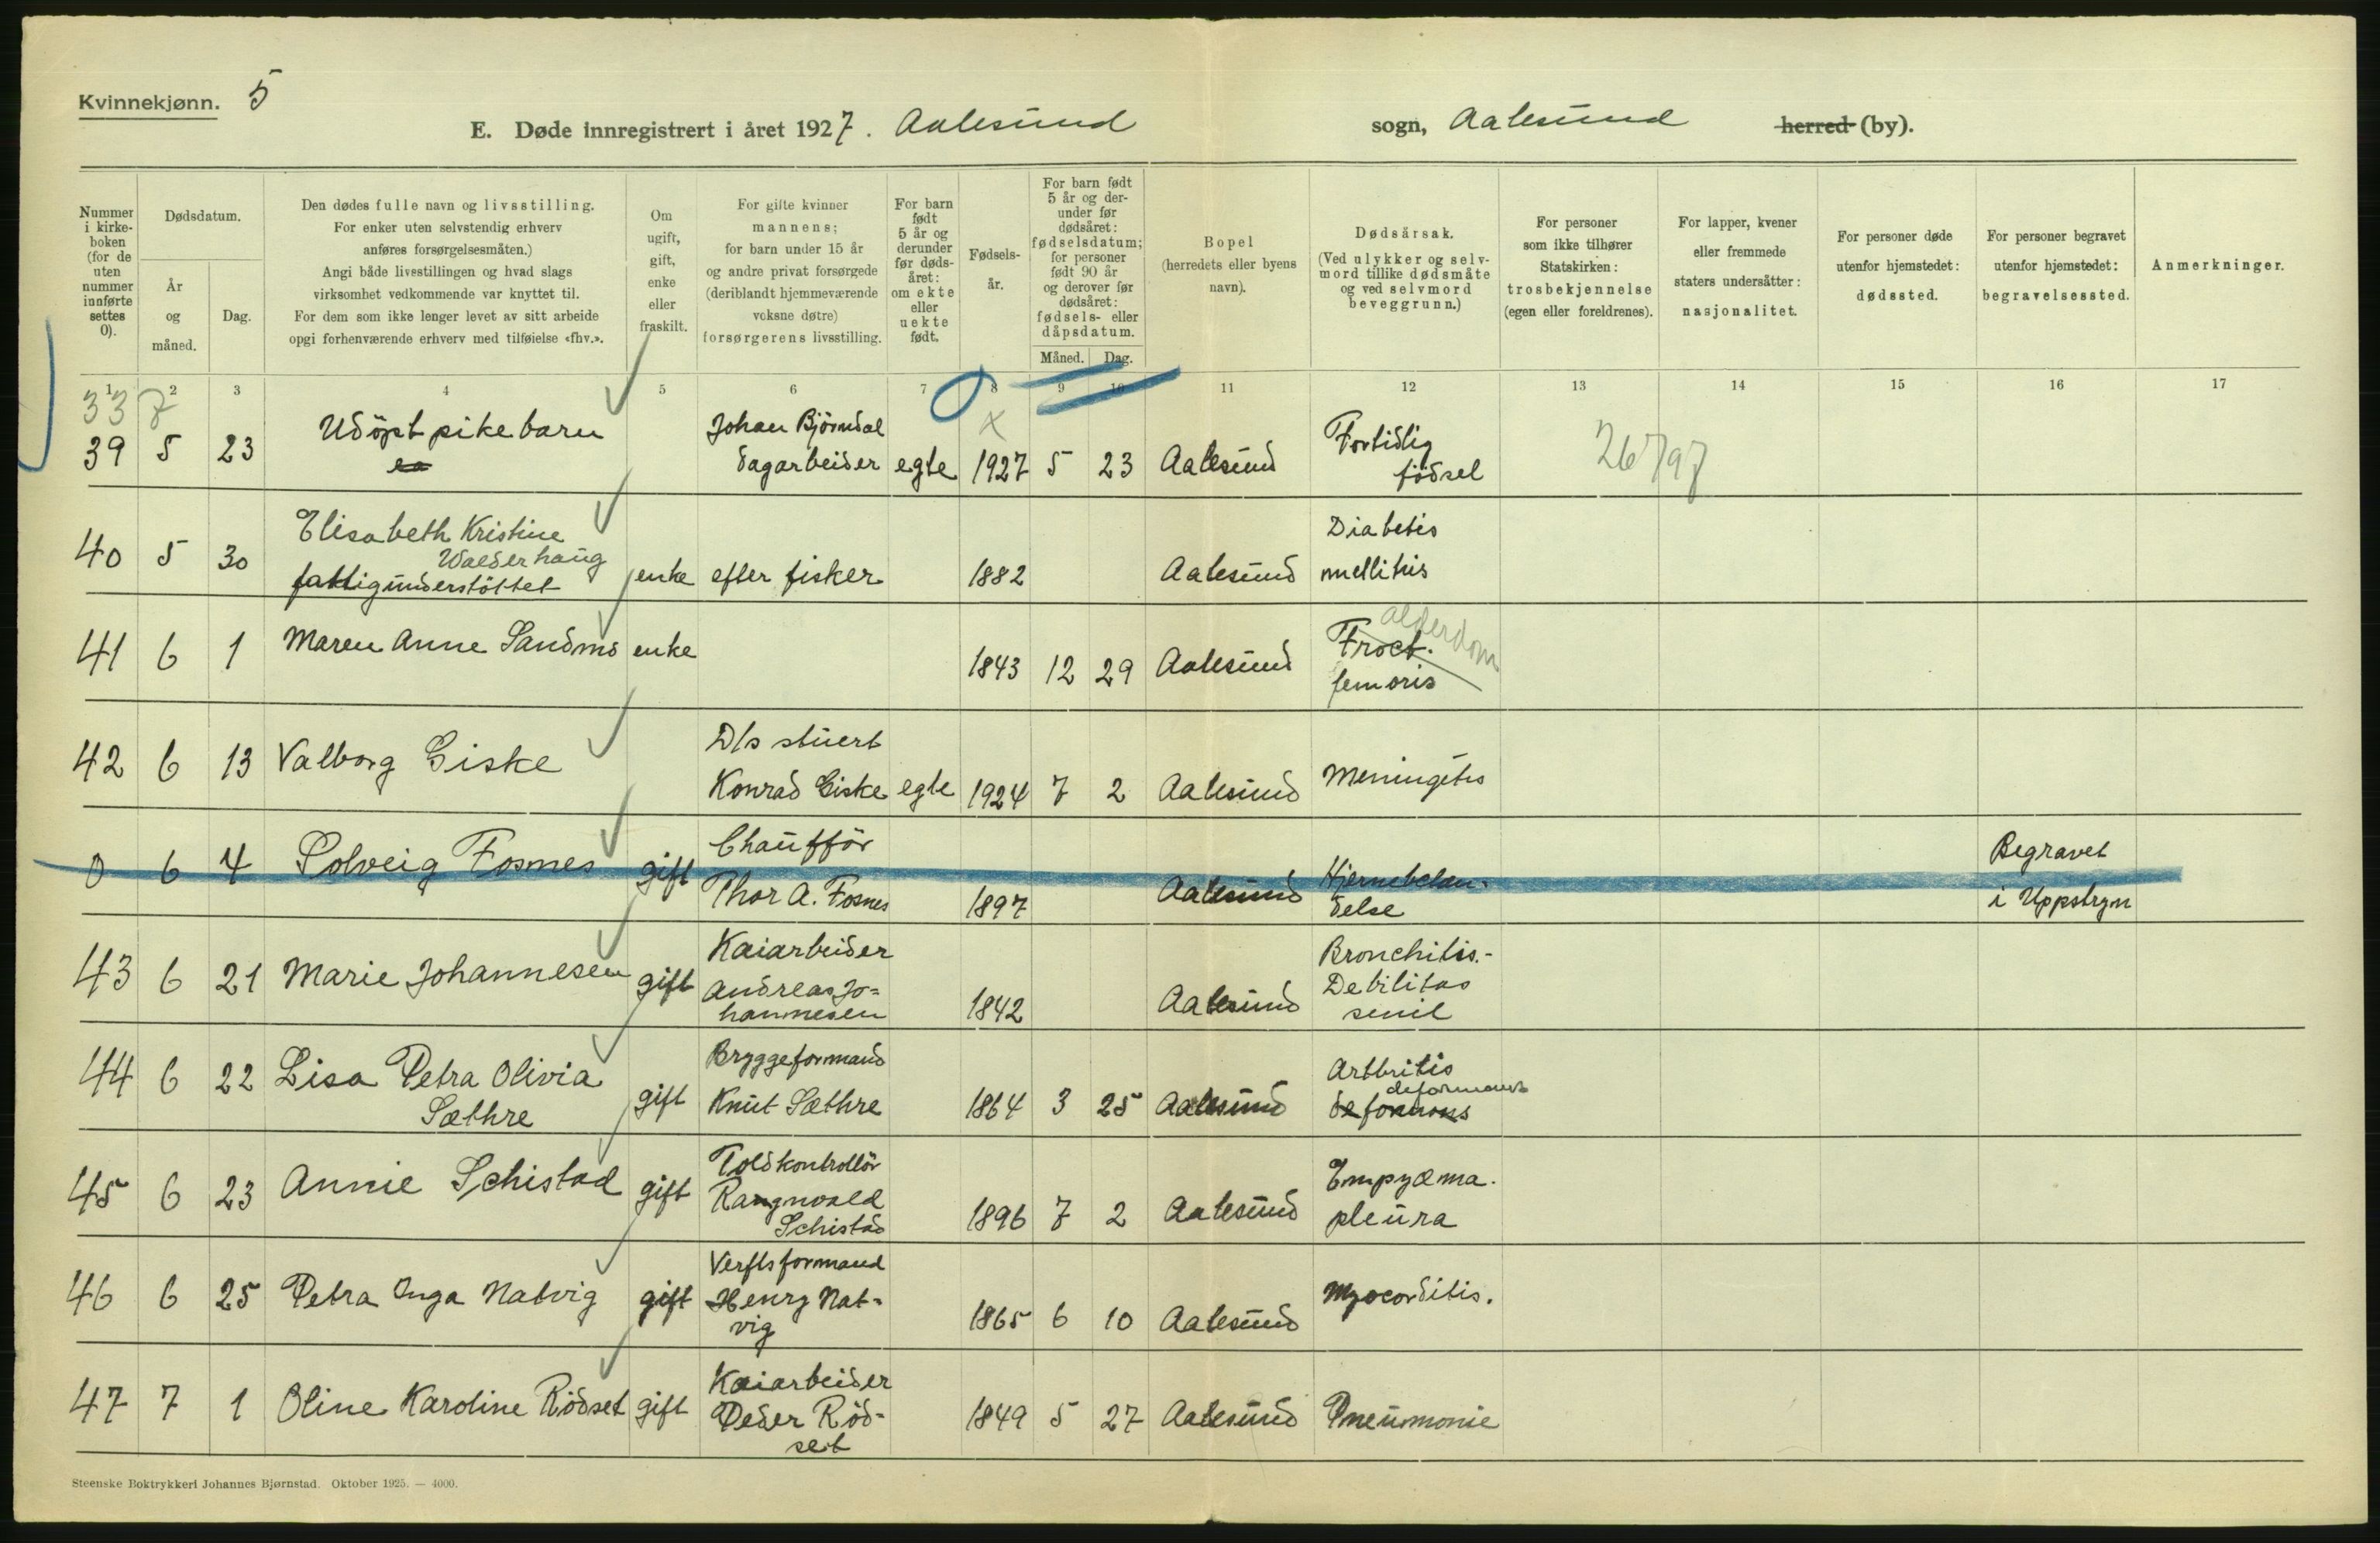 Kvinnekjønn. 5
E. Døde innregistrert i året 1927. Aalesund sogn, Aalesund herred (by).
Nummer i kirke-boken (for de uten nummer innførte settes 0).
Dødsdatum.
År og måned.
Dag.
Den dødes fulle navn og livsstilling.
For enker uten selvstendig erhverv
anføres forsørgelsesmåten.)
Angi både livsstillingen og hvad slags
virksomhet vedkommende var knyttet til.
For dem som ikke lenger levet av sitt arbeide
opgi forhenværende erhverv med tilføielse «fhv.».
Om ugift, gift, enke eller fraskilt.
For gifte kvinner
mannens;
for barn under 15 år
og andre privat forsørgede
(deriblandt hjemmeværende
voksne døtre)
forsørgerens livsstilling.
For barn født 5 år og derunder før døds-året: om ekte eller uekte født.
Fødsels-år.
For barn født 5 år og der-under før dødsåret: fødselsdatum; for personer født 90 år og derover før dødsåret: fødsels- eller dåpsdatum.
Måned. Dag.
Bopel
(herredets eller byens
navn).
Dødsårsak.
(Ved ulykker og selv-
mord tillike dødsmåte
og ved selvmord
beveggrunn.)
For personer
som ikke tilhører
Statskirken:
trosbekjennelse
(egen eller foreldrenes).
For lapper, kvener
eller fremmede
staters undersåtter:
nasjonalitet.
For personer døde
utenfor hjemstedet:
dødssted.
For personer begravet
utenfor hjemstedet:
begravelsessted.
Anmerkninger.
1 2 3 4 5 6 7 8 9 10 11 12 13 14 15 16 17
337
x
26797
39 5 23 Udöpt pikebarn Johan Björndal dagarbeider egte 1927 5 23 Aalesund Fortidlig födsel
40 5 30 Elisabeth Kristine Walderhaug fattigunderstöttet enke efter fisker 1882 Aalesund Diabetis mellitus
41 6 1 Maren Anne Sandmo enke 1843 12 29 Aalesund Froct. femoris alderdom
42 6 13 Valborg Giske D/s stuert Konrad Giske egte 1924 7 2 Aalesund Meningitis
0 6 4 Solveig Fosnes gift Chaufför Thor A. Fosnes 1897 Aalesund Hjernebetændelse Begravet i Uppstryn
43 6 21 Marie Johannesen gift Kaiarbeider Andreas Jo=hannesen 1842 Aalesund Bronchitis.- Debilitas senil
44 6 22 Lisa Petra Olivia Sæthre gift Bryggeformand Knut Sæthre 1864 3 25 Aalesund Arthritis deformans deformans
45 6 23 Annie Schistad gift Toldkontrollör Rangnvald Schistad 1896 7 2 Aalesund Empyæma. pleura
46 6 25 Petra Inga Natvig gift Verftsformand Henry Nat=vig 1865 6 10 Aalesund Myocorditis.
47 7 1 Oline Karoline Rödset gift Kaiarbeider Peder Röd=set 1849 5 27 Aalesund Pneumonie
Steenske Boktrykkeri Johannes Bjørnstad. Oktober 1925. — 4000.